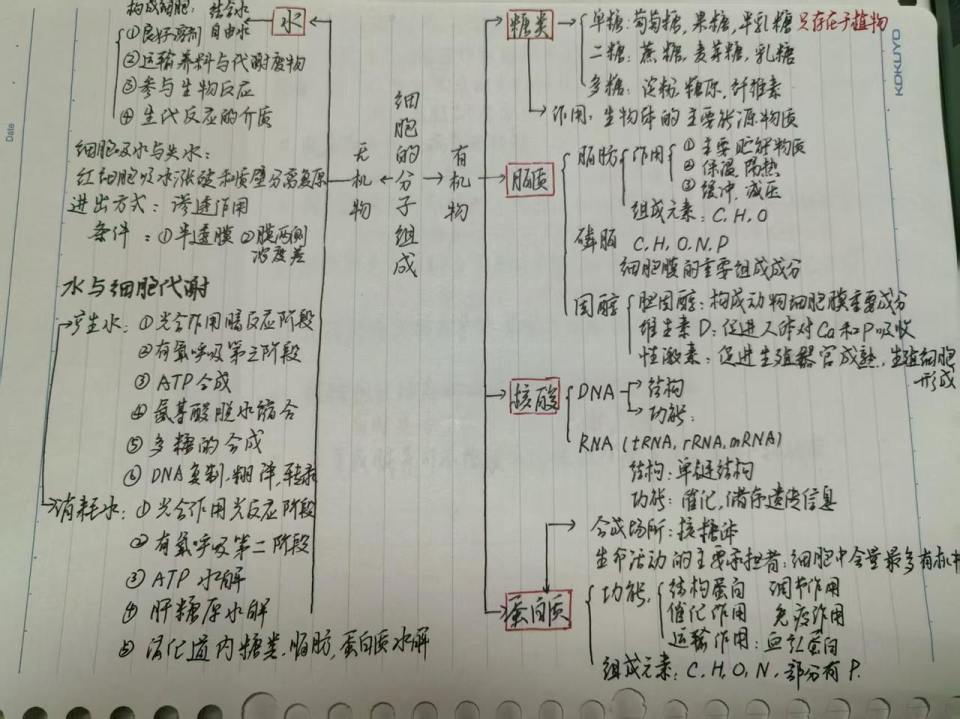 构成细胞：结合水
水
①良好溶剂 自由水
②运输养料与代谢废物
③参与生物反应
④生化反应的介质
细胞吸水与失水：
红细胞吸水涨破和质壁分离复原
进出方式：渗透作用
条件：①半透膜 ②膜两侧
浓度差
水与细胞代谢
产生水：①光合作用暗反应阶段
②有氧呼吸第三阶段
③ATP合成
④氨基酸脱水缩合
⑤多糖的合成
⑥DNA复制、翻译、转录
消耗水：①光合作用光反应阶段
②有氧呼吸第二阶段
③ATP水解
④肝糖原水解
⑤消化道内糖类、脂肪、蛋白质水解
无机物
细胞的分子组成
有机物
糖类
单糖：葡萄糖，果糖，半乳糖 只存在于植物
二糖：蔗糖，麦芽糖，乳糖
多糖：淀粉，糖原，纤维素
作用：生物体的主要能源物质
脂质
脂肪 作用 ①主要贮能物质
②保温 隔热
③缓冲，减压
组成元素：C、H、O
磷脂 C、H、O、N、P
细胞膜的重要组成成分
固醇 胆固醇：构成动物细胞膜重要成分
维生素D：促进人体对Ca和P吸收
性激素：促进生殖器官成熟，生殖细胞
形成
核酸
DNA 结构
功能：
RNA（tRNA，rRNA，mRNA）
结构：单链结构
功能：催化，储存遗传信息
蛋白质
合成场所：核糖体
生命活动的主要承担者：细胞中含量最多有机
功能： 结构蛋白 调节作用
催化作用 免疫作用
运输作用：血红蛋白
组成元素：C、H、O、N、部分有P.
KOKUYO
Date